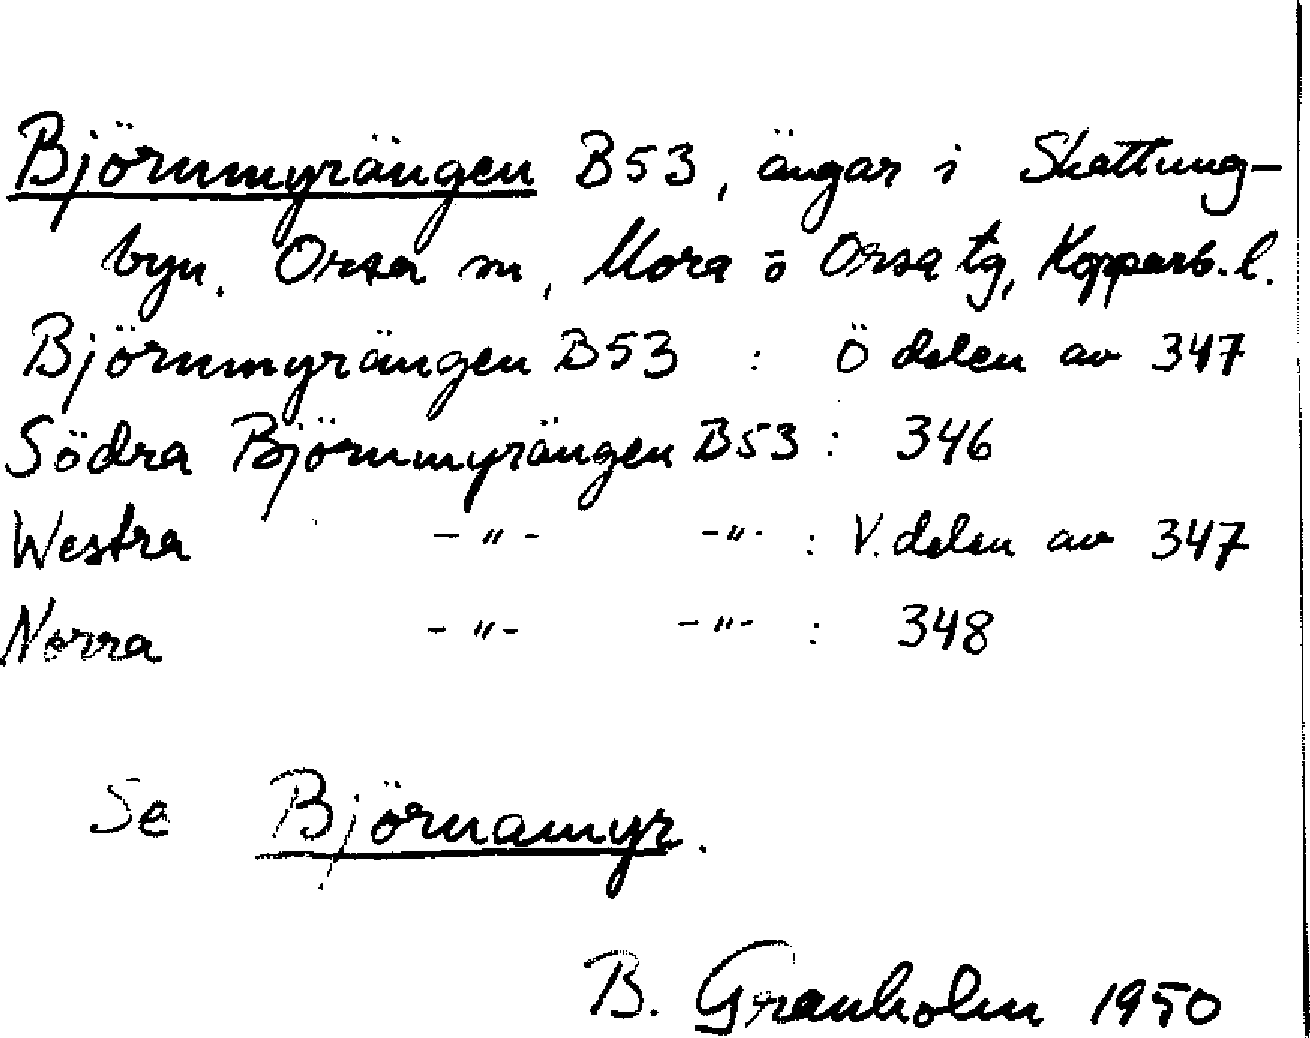 Björnmyrängen B53, ängar i Skattung-
byn, Orsa sn, Mora o Orsa tg, Kopparb. l.
Björnmyrängen B53 : Ö delen av 347
Södra Björnmyrängen B53 : 346
Westra -"- -"- : V. delen av 347
Norra -"- -"- : 348
Se Björnamyr.
B. Granholm 1950